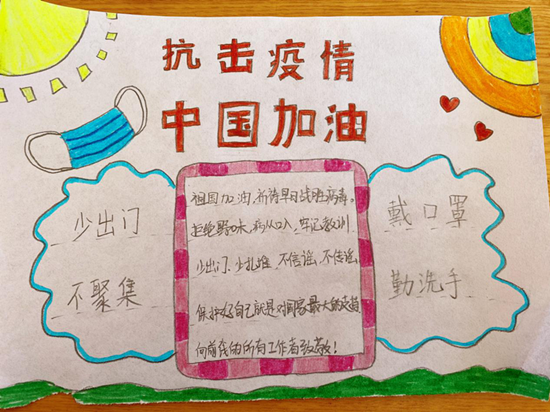 抗击疫情
中国加油
少出门
不聚集
祖国加油,祈祷早日战胜病毒。
拒绝野味,病从口入,牢记教训
少出门、少扎堆、不信谣、不传谣,
保护好自己就是对国家最大的支持
向前线的所有工作者致敬!
戴口罩
勤洗手